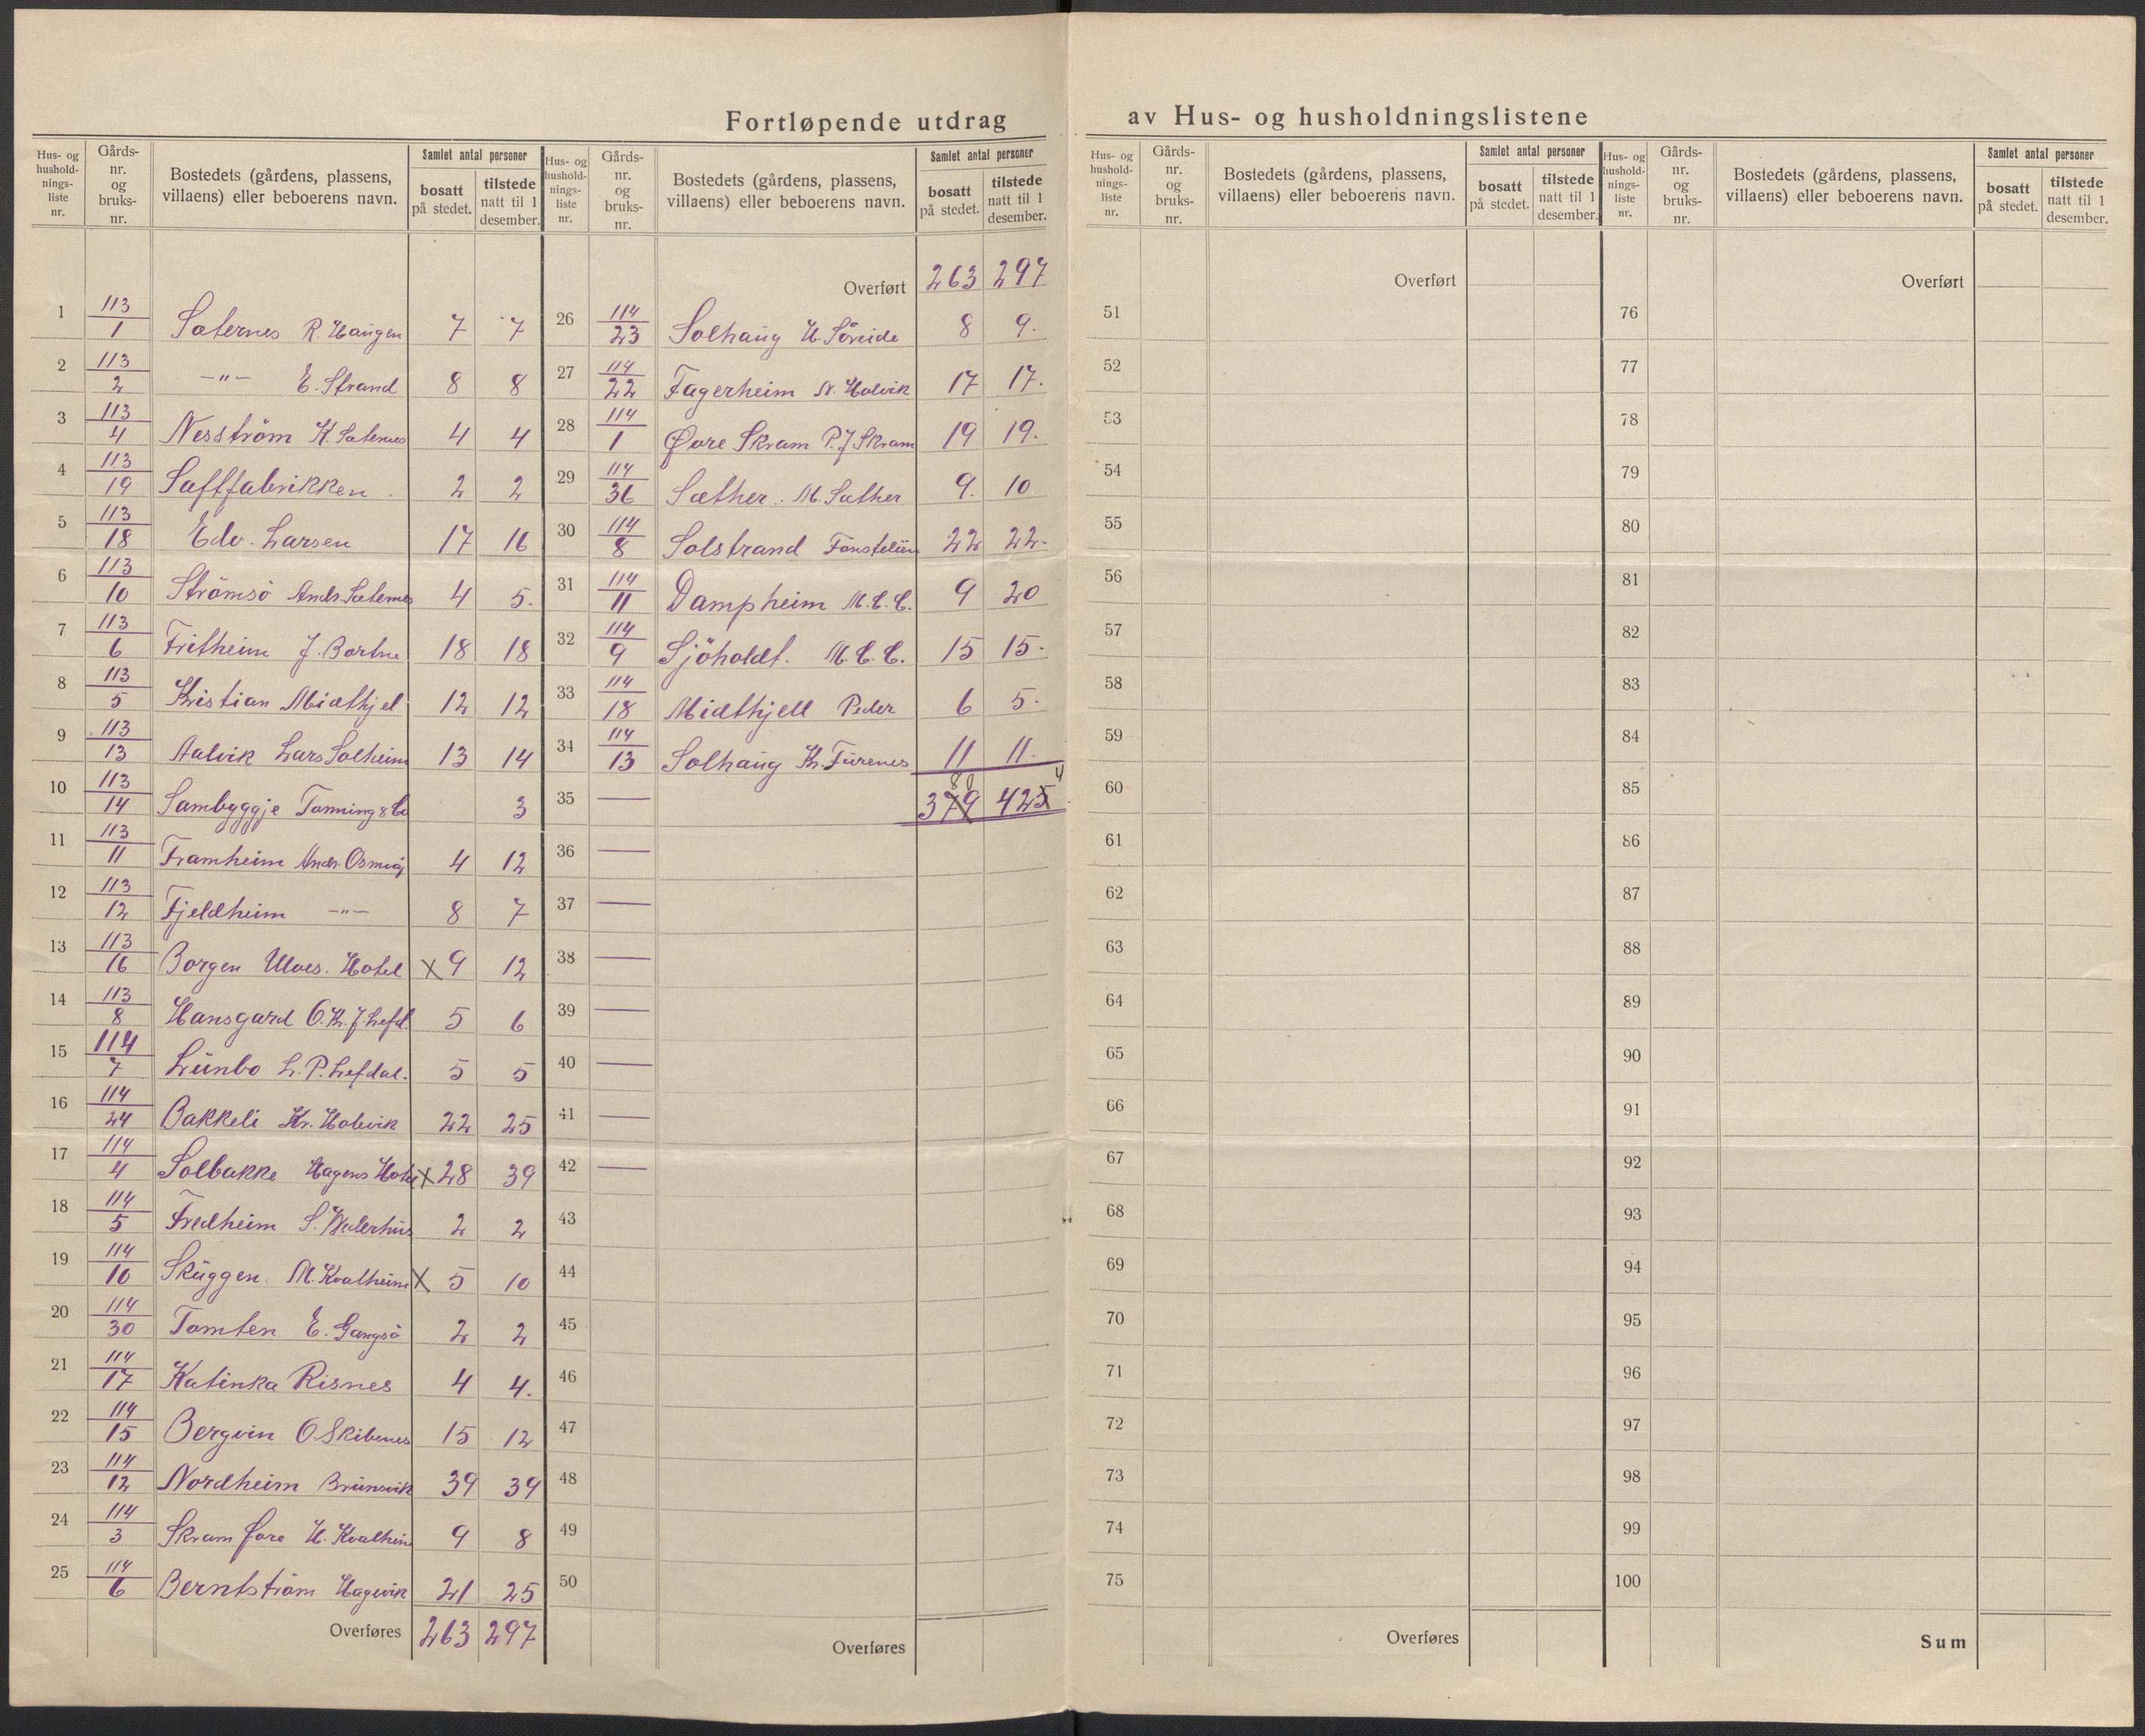 Fortløpende utdrag av Hus- og husholdningslistene
Hus- og hushold-nings-liste nr. Gårds-nr. og bruks-nr. Bostedets (gårdens, plassens, villaens) eller beboerens navn. Samlet antal personer bosatt på stedet. tilstede natt til 1 desember.
1 113/1 Sæternes R. Haugen 7 7
2 113/2 -"- E. Strand 8 8
3 113/4 Nesström K. Sæternes 4 4
4 113/19 Saftfabrikken 2 2
5 113/18 Edv. Larsen 17 16
6 113/10 Strömsö Andr. Sæternes 4 5.
7 113/6 Fritheim J. Bortne 18 18
8 113/5 Kristian Midthjel 12 12
9 113/13 Aalvik Lars Solheim 13 14
10 113/14 Sambyggje Tonning & Co 3
11 113/11 Framheim Andr. 4 12
12 113/12 Fjeldheim -"- 8 7
13 113/16 Borgen Ulves. Hotel x 9 12
14 113/8 Hansgard O. Kr. J. Lefd. 5 6
15 114/7 Lünbo L. P. Lefdal. 5 5
16 114/24 Bakkeli Kr. Holevik 22 25
17 114/4 Solbakke Hagens Hotel x 28 39
18 114/5 Fredheim S. 2 2
19 114/10 Skuggen. M. Kvalheim x 5 10
20 114/30 Tomten E. Gangsö 2 2
21 114/17 Katinka Risnes 4 4.
22 114/15 Bergvin O Skibenes 15 12
23 114/12 Nordheim Brunsvik 39 39
24 114/3 Skram Øore H. Kvalheim 9 8
25 114/6 Berntström Hagevik 21 25
Overføres 263 297
Hus- og hushold-nings-liste nr. Gårds-nr. og bruks-nr. Bostedets (gårdens, plassens, villaens) eller beboerens navn. Samlet antal personer bosatt på stedet. tilstede natt til 1 desember.
Overført 263 297
26 114/23 Solhaug H. Söreide 8 9.
27 114/22 Fagerheim N. Holvik 17 17.
28 114/1 Øore Skram P. J Skram 19 19.
29 114/36 Sæther. M. Sæther 9. 10
30 114/8 Solstrand 22 22-
31 114/11 Dampheim M. E. C. 9 20
32 114/9 Sjöholdt. M. E. C. 15 15.
33 114/18 Midthjell Peder 6 5.
34 114/13 Solhaug Kr. Furenes 11 11.
80 4
35 — 379 425
36 —
37 —
38 —
39 —
40 —
41 —
42 —
43
44
45
46
47
48
49
50
Overføres
Hus- og hushold-nings-liste nr. Gårds-nr. og bruks-nr. Bostedets (gårdens, plassens, villaens) eller beboerens navn. Samlet antal personer bosatt på stedet. tilstede natt til 1 desember.
Overført
51
52
53
54
55
56
57
58
59
60
61
62
63
64
65
66
67
68
69
70
71
72
73
74
75
Overføres
Hus- og hushold-nings-liste nr. Gårds-nr. og bruks-nr. Bostedets (gårdens, plassens, villaens) eller beboerens navn. Samlet antal personer bosatt på stedet. tilstede natt til 1 desember.
Overført
76
77
78
79
80
81
82
83
84
85
86
87
88
89
90
91
92
93
94
95
96
97
98
99
100
Sum